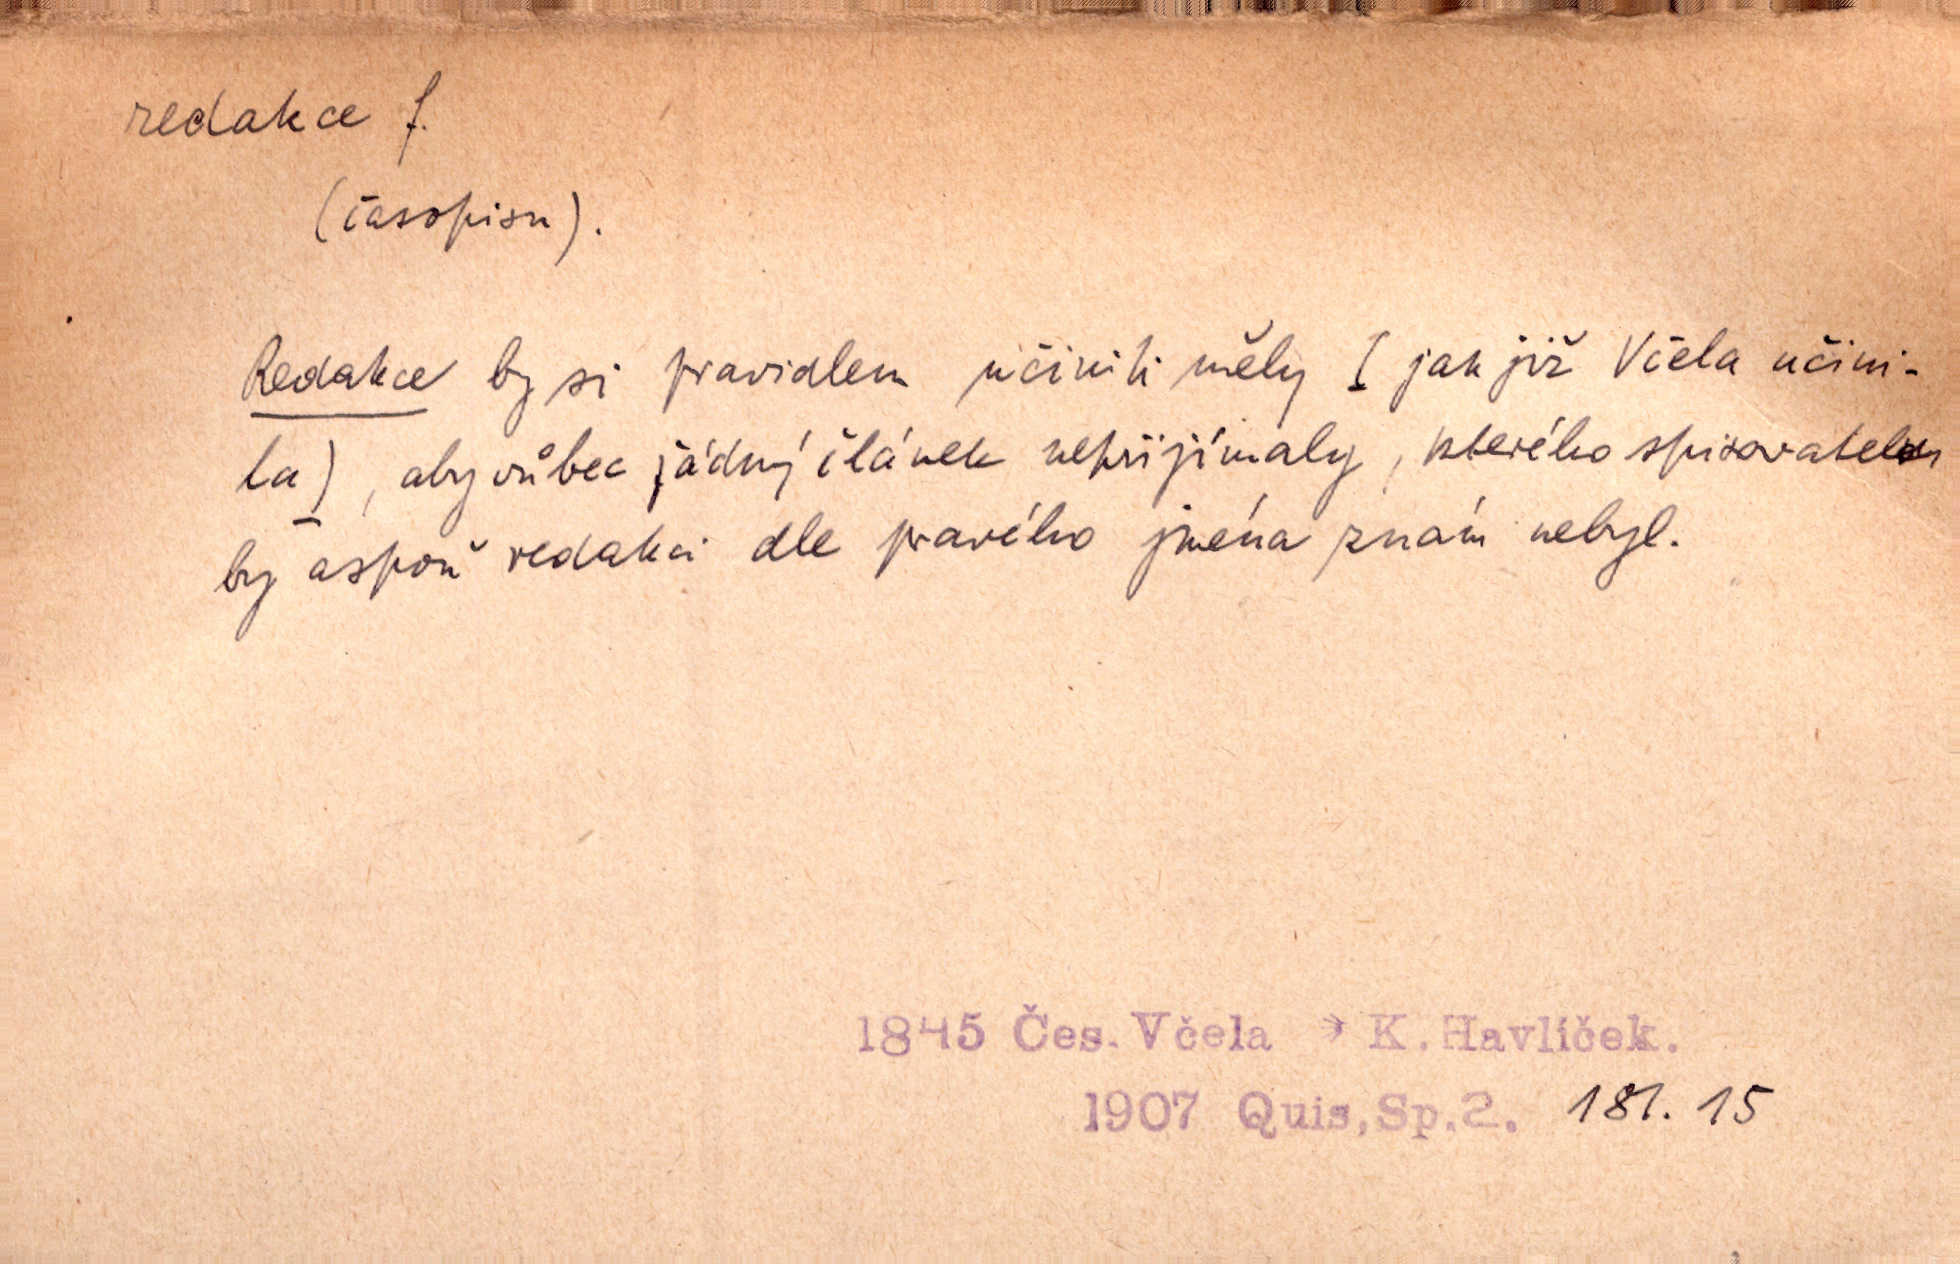 redakce f.
(časopisu).
Redakce by si pravidlem učiniti měly [jak již Včela učini-
la], aby vůbec žádný článek nepřijímaly, kterého spisovatel
by aspoň redakci dle pravého jména znám nebyl.
1845 Čes. Včela * K. Havlíček.
1907 Quis, Sp. 2. 181. 15